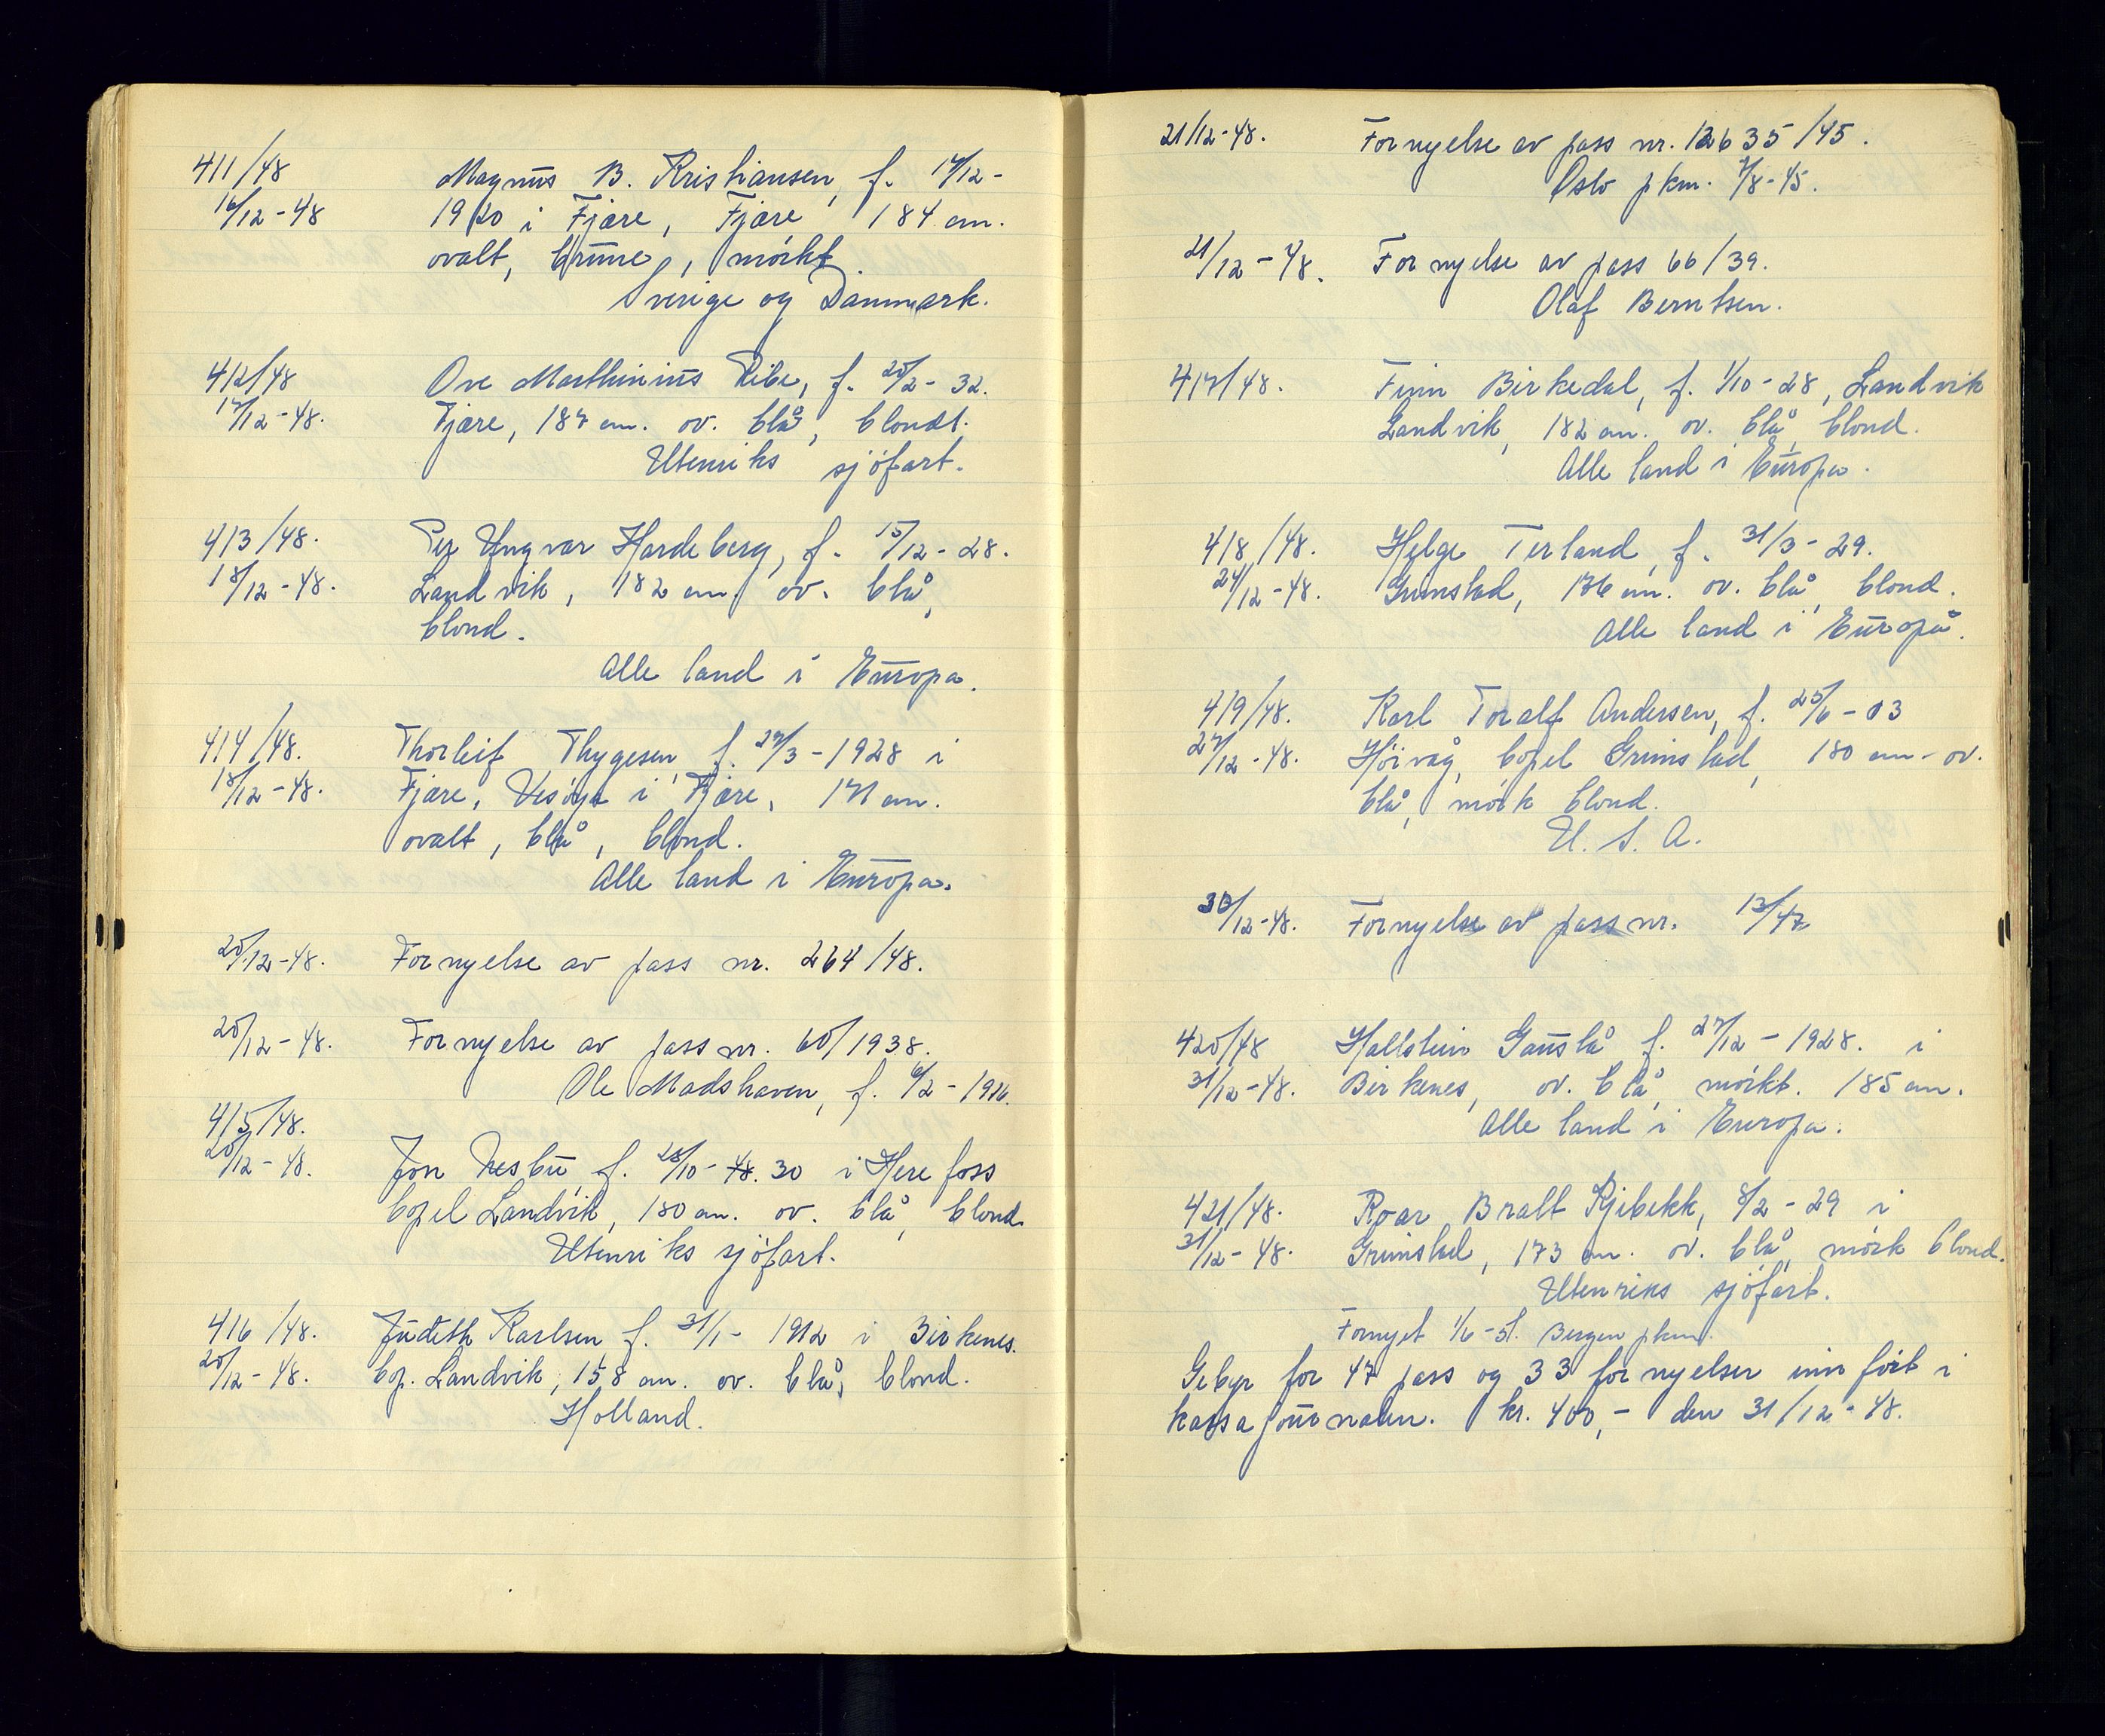 411/48
16/12-48
Magnus B. Kristiansen, f. 14/12-
1920 i Fjære, Fjære, 184 cm.
ovalt, brune, mörkt
Sverige og Danmark.
412/48
17/12-48.
Ove Marthinius Ribe, f. 20/2-32.
Fjære, 187 cm. ov. blå, blondt.
Utenriks sjöfart.
413/48.
18/12-48.
Per Yngvar Hardeberg, f. 15/12-28.
Landvik, 182 cm. ov. blå,
blond.
Alle land i Europa.
414/48.
18/12-48.
Thorleif Thygesen, f. 27/3-1928 i
Fjære, Vesöya i Fjære, 171 cm.
ovalt, blå, blond.
Alle land i Europa.
20/12-48.
Fornyelse av pass nr. 264/48.
20/12-48.
Fornyelse av pass nr. 60/1938.
Ole Madshaven, f. 6/2-1916.
415/48.
20/12-48.
Jon Nesbu, f. 28/10-48. 30 i Herefoss
bopel Landvik, 180 cm. ov. blå, blond.
Utenriks sjöfart.
416/48.
20/12-48.
Judith Karlsen, f. 31/1-1912 i Birkenes.
bop. Landvik, 158 cm. ov. blå, blond.
Holland.
21/12-48.
Fornyelse av pass nr. 12635/45.
Oslo pkm. 7/8-45.
21/12-48.
Fornyelse av pass 66/39.
Olaf Berntsen.
417/48.
Finn Birkedal, f. 1/10-28, Landvik
Landvik, 182 cm. ov. blå, blond.
Alle land i Europa.
418/48.
24/12-48.
Helge Terland, f. 31/3-29.
Grimstad, 176 cm. ov. blå, blond.
Alle land i Europa.
419/48.
27/12-48.
Karl Toralf Andersen, f. 25/6-03
Hörvåg, bopel Grimstad, 180 cm-ov.
blå, mörk blond.
U. S. A.
30/12-48.
Fornyelse av pass nr. 13/47
420/48
31/12-48.
Hallstein Gauslå f. 27/12-1928. i
Birkenes, ov. blå, mörkt. 185 cm.
Alle land i Europa.
421/48.
31/12-48.
Roar Bratt Kjebekk, 8/2-29 i
Grimstad, 173 cm. ov. blå, mörk blond.
Utenriks sjöfart.
Fornyet 1/6-51. Bergen pkm.
Gebyr for 47 pass og 33 fornyelser innfört i
kassajournalen. kr. 400,- den 31/12-48.